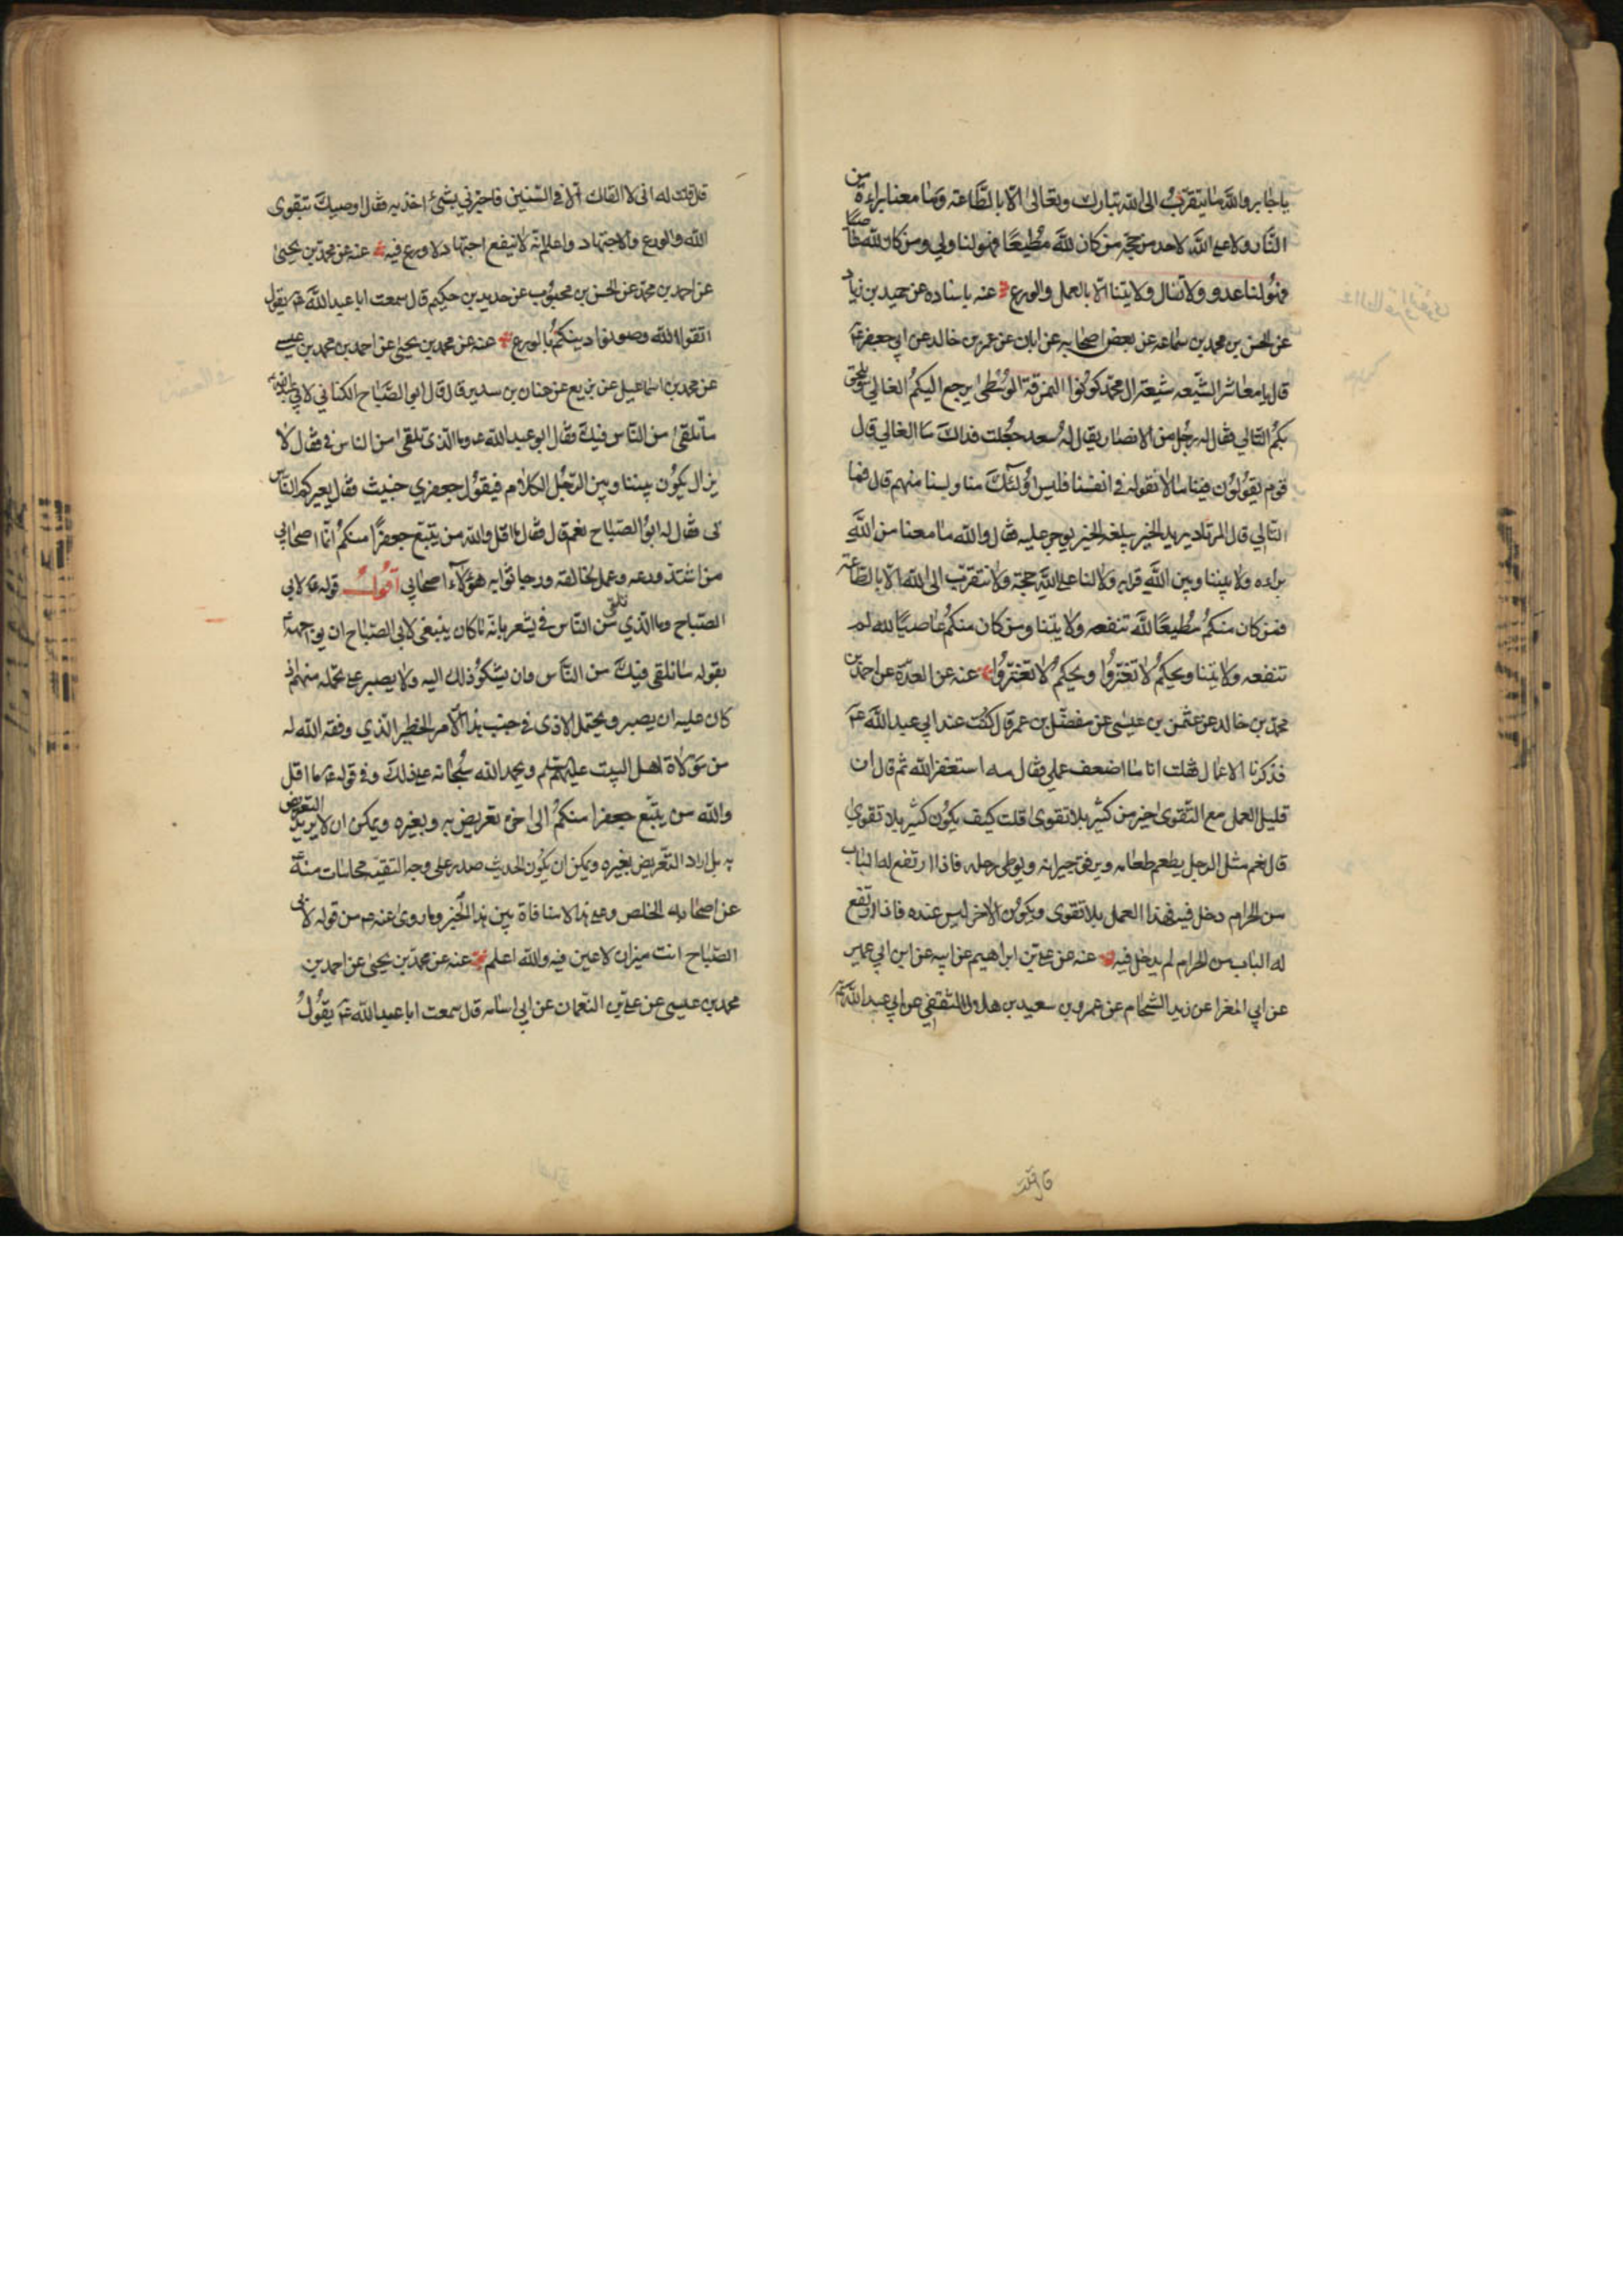 يا جابر والله ما يتقرب الى الله تبارك وتعالى الا بالطاعة وما معنا براءة من
النار ولا على الله لاحد من حجة من كان لله مطيعا فهو لنا ولي ومن كان لله عاصيا
فهو لنا عدو ولا تنال ولايتنا الا بالعمل والورع عنه باسناده عن حميد بن زياد
عن الحسن بن محمد بن سماعه عن بعض اصحابه عن ابان عن عمر بن خالد عن ابي جعفر ع
قال يا معاشر الشيعه شيعة ال محمد كونوا النمرقة الوسطى يرجع اليكم الغالي ويلحق
بكم التالي فقال له رجل من الانصار يقال له سعد جعلت فداك ما الغالي قال
قوم يقولون فينا ما لا نقوله في انفسنا فليس اولئك منا ولسنا منهم قال فما
التالي قال المرتاد يريد الخير يبلغه الخير يوجر عليه فقال والله ما معنا من الله
براءه ولا بيننا وبين الله قرابه ولا لنا على الله حجة ولا نتقرب الى الله الا بالطاعة
فمن كان منكم مطيعا لله تنفعه ولايتنا ومن كان منكم عاصيا لله لم
تنفعه ولايتنا ويحكم لا تغتروا ويحكم لا تغتروا عنه عن العدة عن احمد بن
محمد بن خالد عن عثمن بن عيسى عن مفضل بن عمر قال كنت عند ابي عبد الله ع
فذكرنا الاعمال فقلت انا ما اضعف عملي فقال مه استغفر الله ثم قال ان
قليل العمل مع التقوى خير من كثير بلا تقوى قلت كيف يكون كثير بلا تقوى
قال نعم مثل الرجل يطعم طعامه ويرفق جيرانه ويوطى رحله فاذا ارتفع له الباب
من الحرام دخل فيه فهذا العمل بلا تقوى ويكون الاخر ليس عنده فاذا ارتفع
له الباب من الحرام لم يدخل فيه عنه عن علي بن ابراهيم عن ابيه عن ابن ابي عمير
عن ابي المغرا عن زيد الشحام عن عمرو بن سعيد بن هلال الثقفي عن ابي عبد الله ع
قال قلت
قال قلت له اني لا القاك الا في السنين فاخبرني بشئ اخذ به فقال اوصيك بتقوى
الله والورع والاجتهاد واعلم انه لا ينفع اجتهاد لا ورع فيه عنه عن محمد بن يحيى
عن احمد بن محمد عن الحسن بن محبوب عن حديد بن حكيم قال سمعت ابا عبد الله ع يقول
اتقوا الله وصونوا دينكم بالورع عنه عن محمد بن يحيى عن احمد بن محمد بن عيسى
عن محمد بن اسماعيل عن بزيع عن حنان بن سدير قال قال ابو الصباح الكناني لابي عبد الله ع
ما نلقى من الناس فيك فقال ابو عبد الله ع وما الذي تلقى من الناس في فقال لا
يزال يكون بيننا وبين الرجل الكلام فيقول جعفري خبيث فقال يعيركم الناس
بي فقال له ابو الصباح نعم قال فقال ما اقل والله من يتبع جعفرا منكم انما اصحابي
من اشتد ورعه وعمل لخالقه ورجا ثوابه هؤلاء اصحابي اقول قوله ع لابي
الصباح وما الذي تلقى من الناس في يشعر بانه ما كان ينبغي لابي الصباح ان يواجهه
بقوله ما نلقى فيك من الناس وان يشكو ذلك اليه ولا يصبر على تحمله منهم اذ
كان عليه ان يصبر ويحتمل الاذى في جنب هذا الامر الخطير الذي وفقه الله له
من موالاة اهل البيت عليهم السلم ويحمد الله سبحانه على ذلك وفي قوله ع ما اقل
والله من يتبع جعفرا منكم الى اخره تعريض به وبغيره ويمكن ان لا يريد التعريض
به بل اراد التعريض بغيره ويمكن ان يكون الحديث صدر على وجه التقية محاشات منه
عن اصحابه الخلص وعلى هذا لا منافاة بين هذا الخبر وما روى عنه ع من قوله لابي
الصباح انت ميزان لا عين فيه والله اعلم عنه عن محمد بن يحيى عن احمد بن
محمد بن عيسى عن علي بن النعمان عن ابي اسامه قال سمعت ابا عبد الله ع يقول